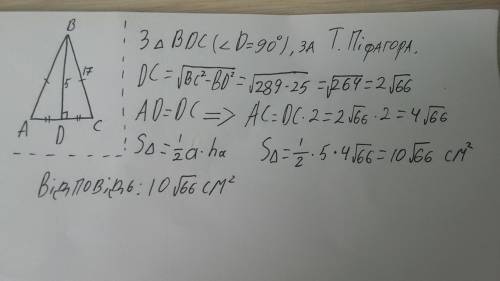 B
17
5
A
D
C
З △ BDC (∠D=90°), за Т. Піфагора.
DC=√BC²-BD²=√289-25=√264=2√66
AD=DC => AC=DC·2=2√66·2=4√66
S△=½a·hₐ    S△=½·5·4√66=10√66 см²
Відповідь: 10√66 см²